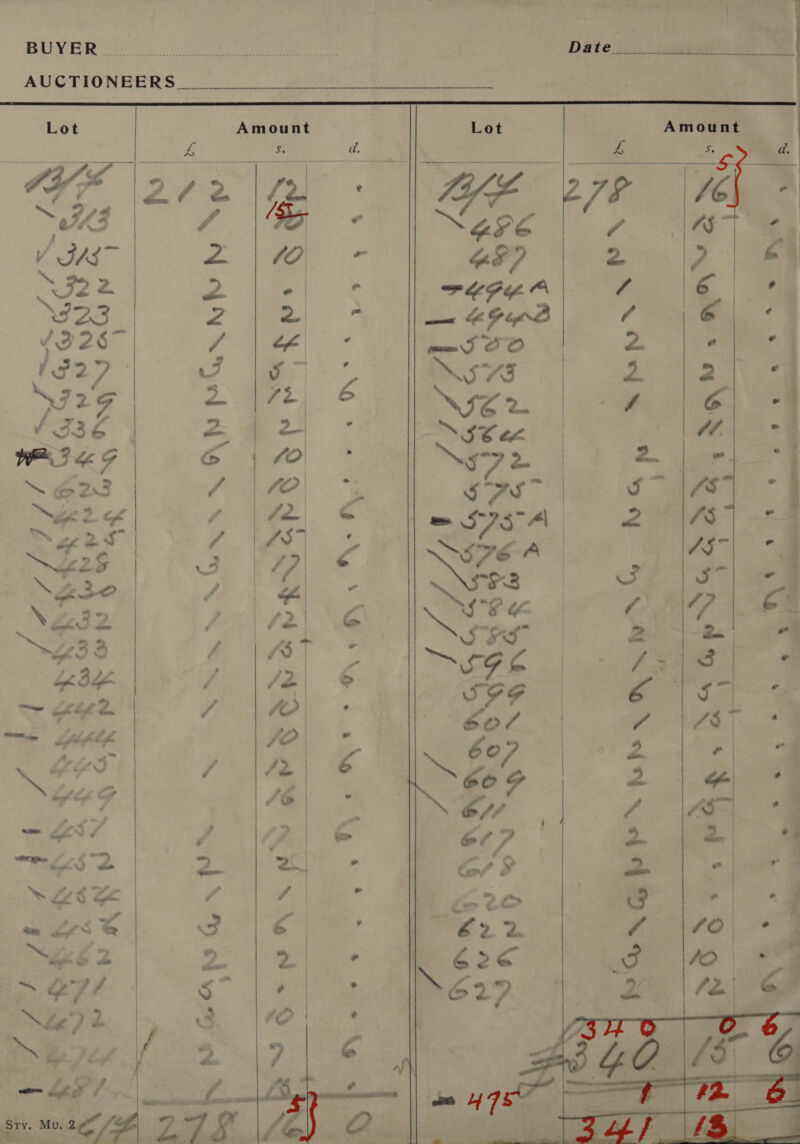 BUYER
Date
AUCTIONEERS
Lot Amount
£ s. d.
B/F 212 12 .
313 1
315 2 10 -
322 2 . .
323 2 2 -
326 1 4 .
327 3 5 .
329 2 12 6
336 2 2 .
349 6 10 .
623 1 10 .
424 1 12 6
425 1 15 .
428 3 17 6
430 1 4 .
432 1 12 6
433 1 15 .
434 1 12 6
442 1 10 .
444 10 .
445 1 12 6
449 16 .
457 1 17 6
452 2 2 .
454 1 1 .
456 3 6 .
462 2 2 .
471 5 . .
472 3 10 .
2 7 6
Sty. Mu. 2 C/F 278 0
Lot Amount
£ s. d.
B/F 278 16 -
486 1 15 .
487 2 7 6
494 A 1 6 .
494 B 1 6 .
500 2 . .
513 2 2 .
562 1 6 .
564 11 .
572 2 . .
575 5 15 .
575 A 2 15 .
576 A 15 .
583 3 5 .
584 1 17 6
585 2 2 .
596 1 3 .
599 6 5 .
601 1 15 .
607 2 . .
609 2 4 .
611 1 15 .
617 2 2 .
618 2 . .
620 3 . .
622 1 10 .
626 3 10 .
627 2 12 6
340 0 6
340 15 6
475 1 12 6
341 13